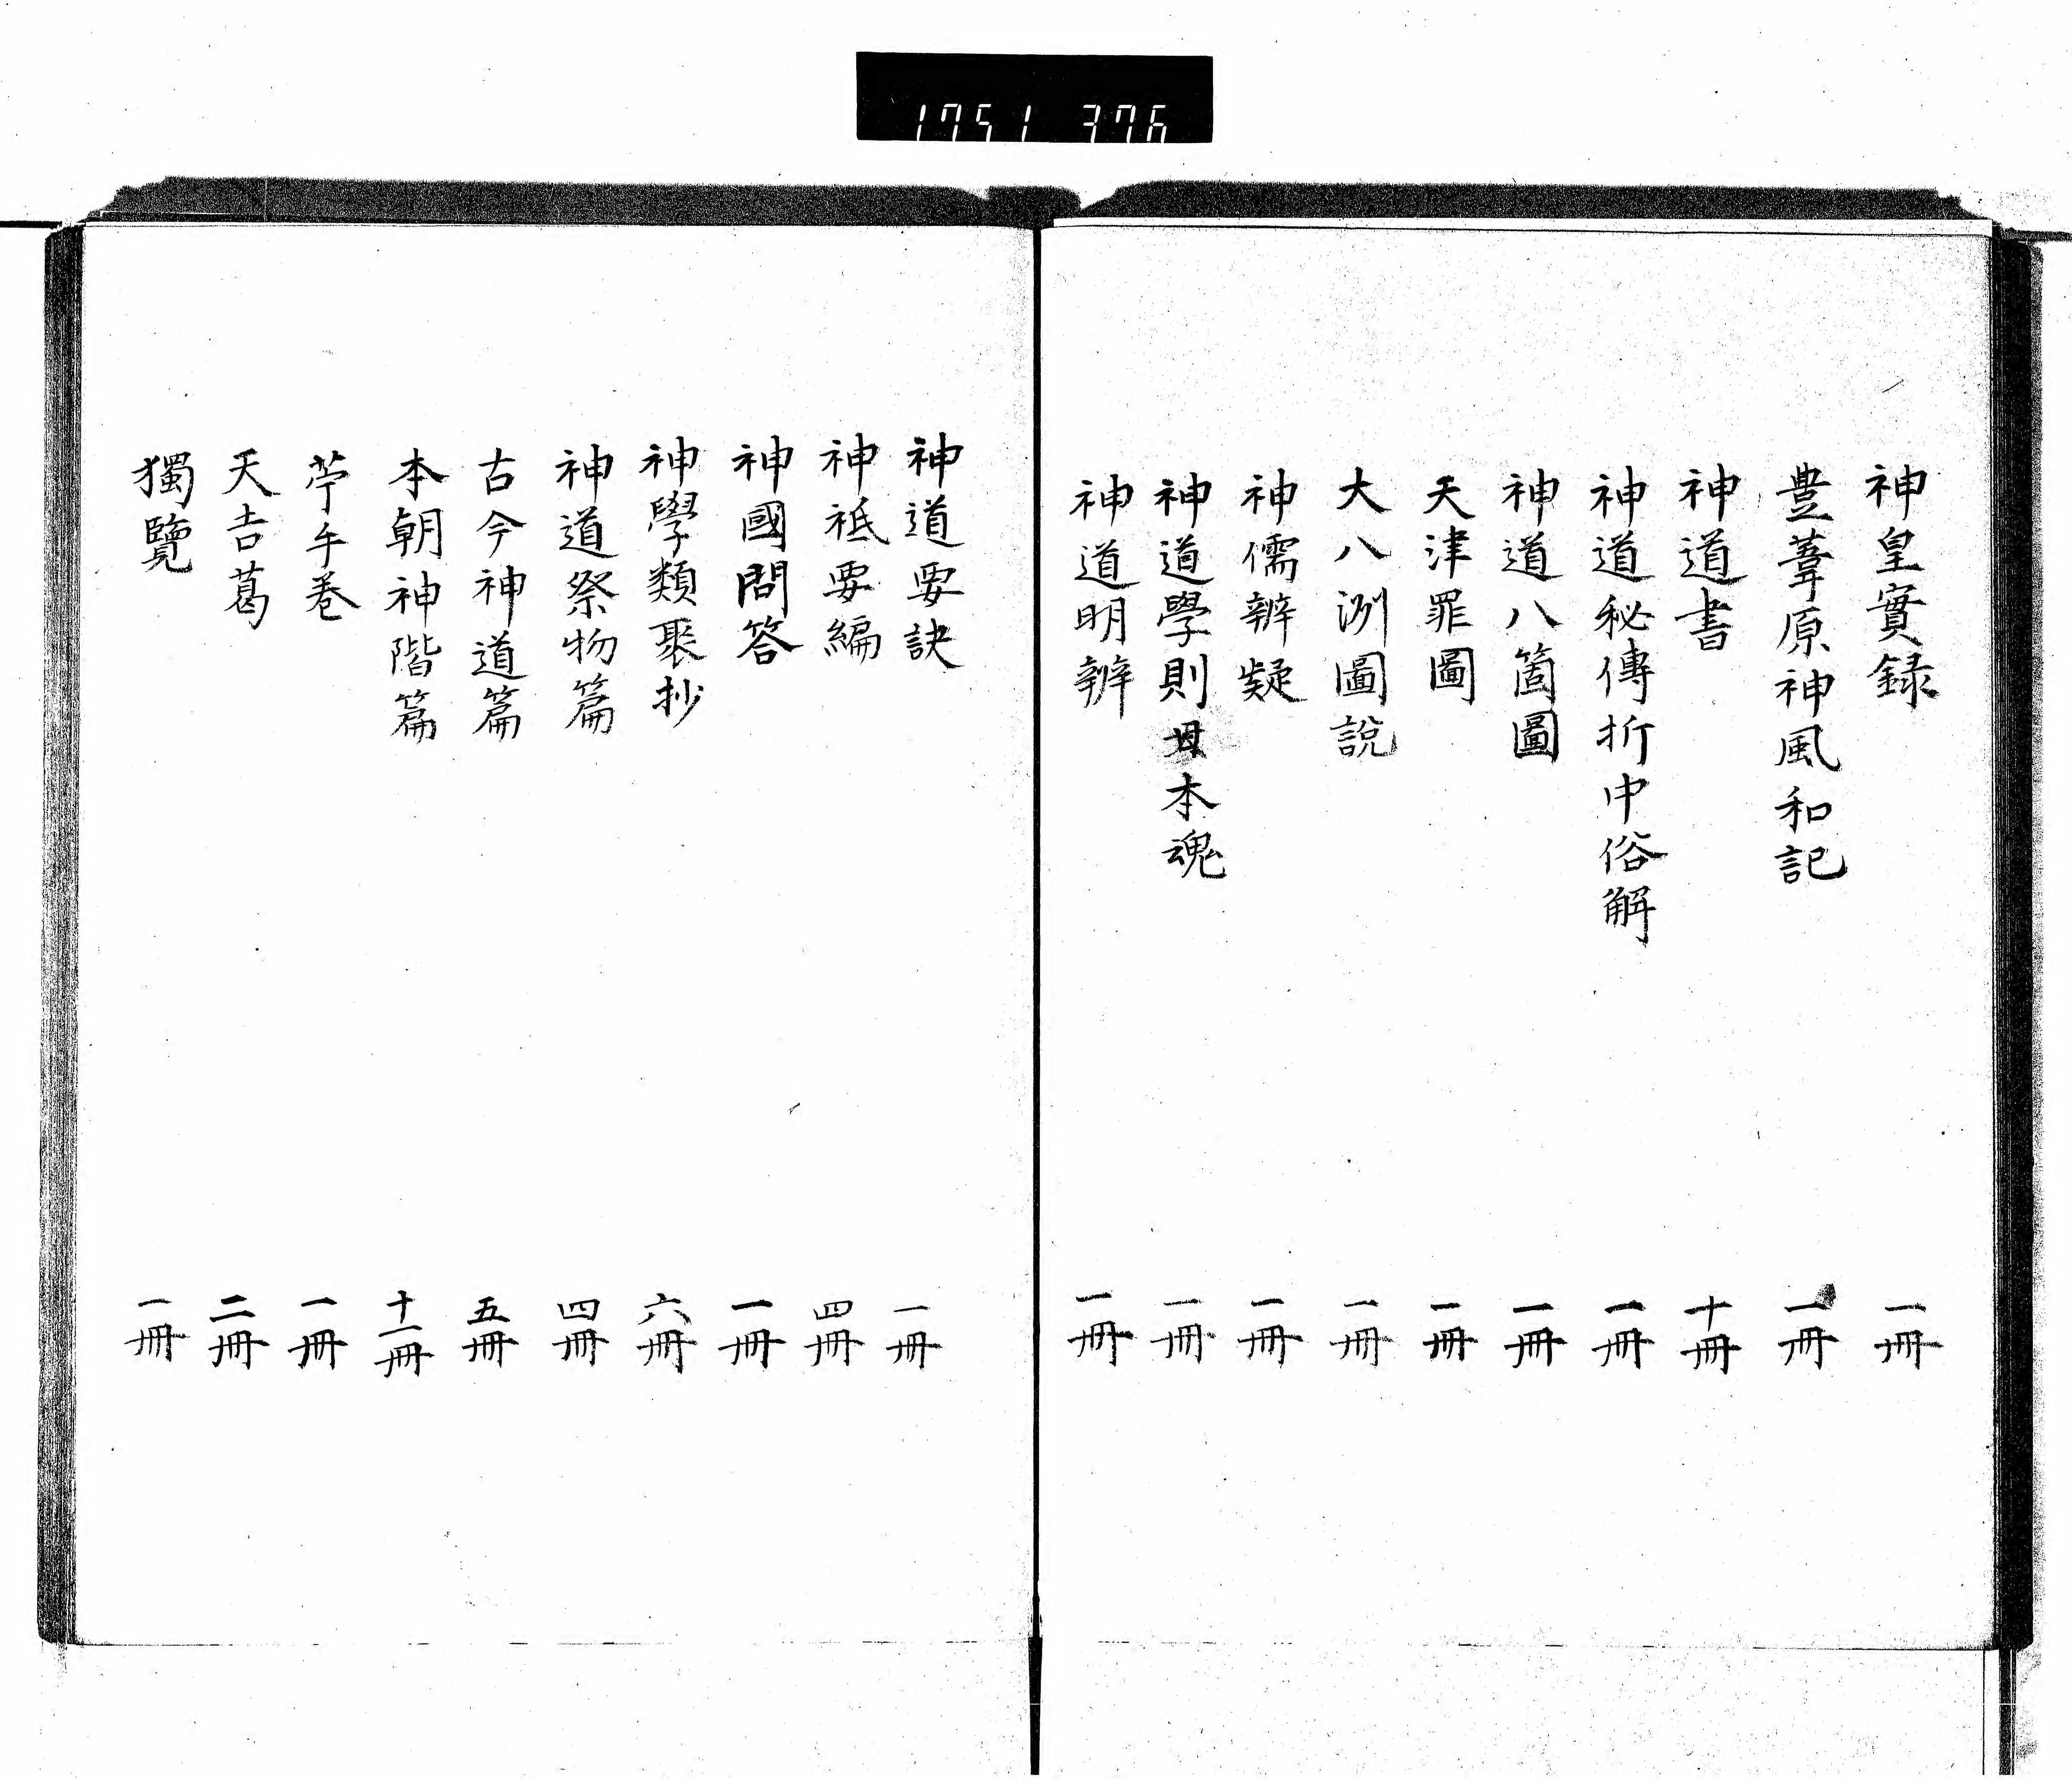 1751 376
神皇實録 一冊
豊葦原神風和記 一冊
神道書 十冊
神道秘傳折中俗解 一冊
神道八箇圖 一冊
天津罪圖 一冊
大八洲圖說 一冊
神儒辨疑 一冊
神道學則日本魂 一冊
神道明辨 一冊
神道要訣 一冊
神祇要編 四冊
神國問答 一冊
神學類聚抄 六冊
神道祭物篇 四冊
古今神道篇 五冊
本朝神階篇 十一冊
苧手巻 一冊
天吉葛 二冊
獨覽 一冊